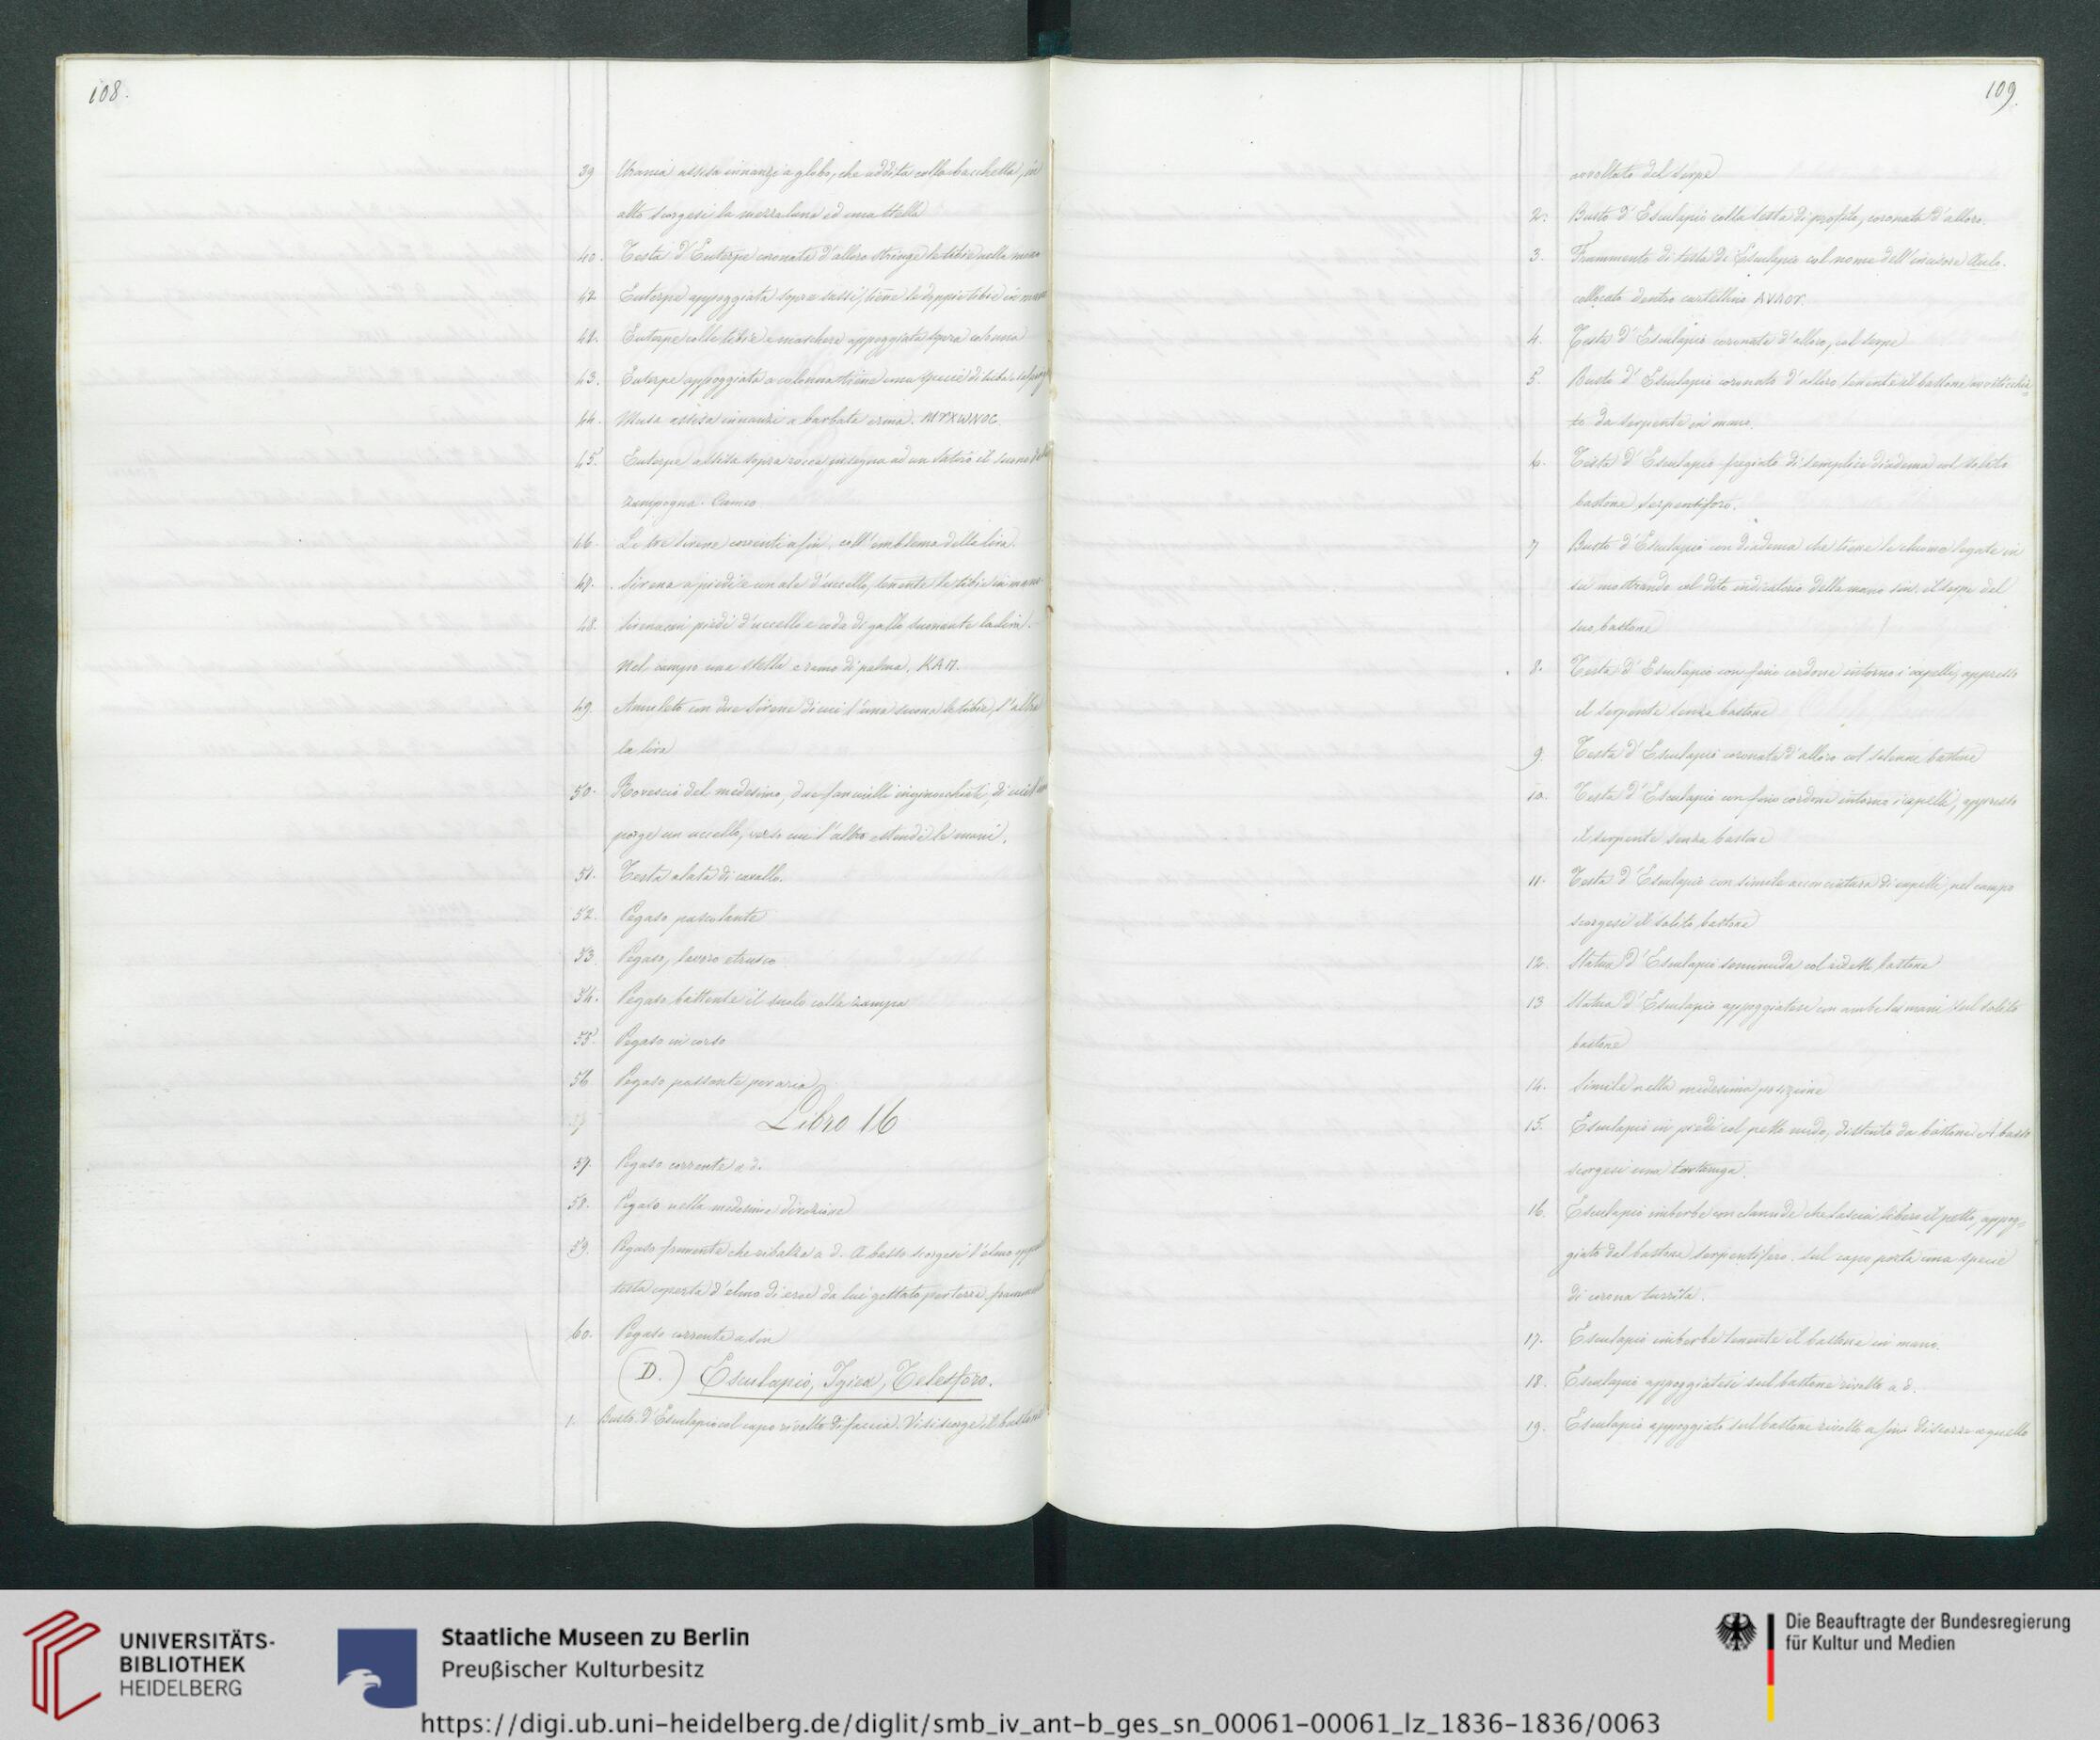 108.
39 Urania assisa innanzi a globo, che addita colla bacchetta, in
alto scorgesi la mezzaluna ed una stella
40. Testa d'Euterpe coronata d'alloro stringe le tibie nella mano
42 Euterpe appoggiata sopra sassi, tiene le doppie tibie in mano
42. Euterpe colle tibie e maschera appoggiata sopra colonna
43. Euterpe appoggiata a colonna tiene una specie di tuba
44. Musa assisa innanzi a barbata erma. ΜΥΧΩΝΟC
45. Euterpe assisa sopra rocca insegna ad un Satiro il suono della
zampogna. Cameo.
46. Le tre Sirene correnti a sin. coll'emblema della lira.
47. Sirena a piedi e con ale d'uccello, tenente le tibie in mano.
48. Sirena con piedi d'uccello e coda di gallo suonante la lira.
Nel campo una stella e ramo di palma. ΚΑΠ.
49. Amuleto con due Sirene di cui l'una suona le tibie, l'altra
la lira
50. Rovescio del medesimo, due fanciulli inginocchiati, di cui l'un
porge un uccello, verso cui l'altro estende le mani.
51. Testa alata di cavallo.
52. Pegaso pascolante
53 Pegaso, lavoro etrusco
54. Pegaso battente il suolo colla zampa
55. Pegaso in corso
56 Pegaso passante per aria
Libro 16
57. Pegaso corrente a d.
58. Pegaso nella medesima direzione
59. Pegaso fremente che sibalza a d. A basso scorgesi l'elmo
testa coperta d'elmo di eroe da lui gettato per terra.
60. Pegaso corrente a sin
(D.) Esculapio, Igiea, Telesforo.
1. Busto d'Esculapio col capo rivolto di faccia. Vi si scorge il bastone
109.
avvoltato del serpe
2. Busto d'Esculapio colla testa di profilo, coronata d'alloro.
3. Frammento di testa di Esculapio col nome dell'incisore Aulo.
collocato dentro cartellino ΑΥΛΟΥ.
4. Testa d'Esculapio coronata d'alloro, col serpe
5. Busto d'Esculapio coronato d'alloro tenente il bastone avviticchia-
to da serpente in mano.
6. Testa d'Esculapio fregiata di semplice diadema col solito
bastone serpentifero.
7 Busto d'Esculapio con diadema che tiene le chiome legate in
su mostrando col dito indicatorio della mano sin. il serpe del
suo bastone
8. Testa d'Esculapio con fino cordone intorno i capelli, appresso
il serpente senza bastone
9. Testa d'Esculapio coronata d'alloro col solenne bastone
10. Testa d'Esculapio con fino cordone intorno i capelli, appresso
il serpente senza bastone
11. Testa d'Esculapio con simile acconciatura di capelli, nel campo
scorgesi il solito bastone
12. Statua d'Esculapio seminuda col ridetto bastone
13 Statua d'Esculapio appoggiatasi con ambe le mani sul solito
bastone
14. Simile nella medesima posizione
15. Esculapio in piedi col petto nudo, distinto da bastone. A basso
scorgesi una tartaruga.
16. Esculapio imberbe con clamide che lascia libero il petto, appog-
giato dal bastone serpentifero. Sul capo porta una specie
di corona turrita.
17. Esculapio imberbe tenente il bastone in mano.
18. Esculapio appoggiatosi sul bastone rivolto a d.
19. Esculapio appoggiato sul bastone rivolto a sin. discorre a quello
UNIVERSITÄTS-
BIBLIOTHEK
HEIDELBERG
Staatliche Museen zu Berlin
Preußischer Kulturbesitz
Die Beauftragte der Bundesregierung
für Kultur und Medien
https://digi.ub.uni-heidelberg.de/diglit/smb_iv_ant-b_ges_sn_00061-00061_lz_1836-1836/0063